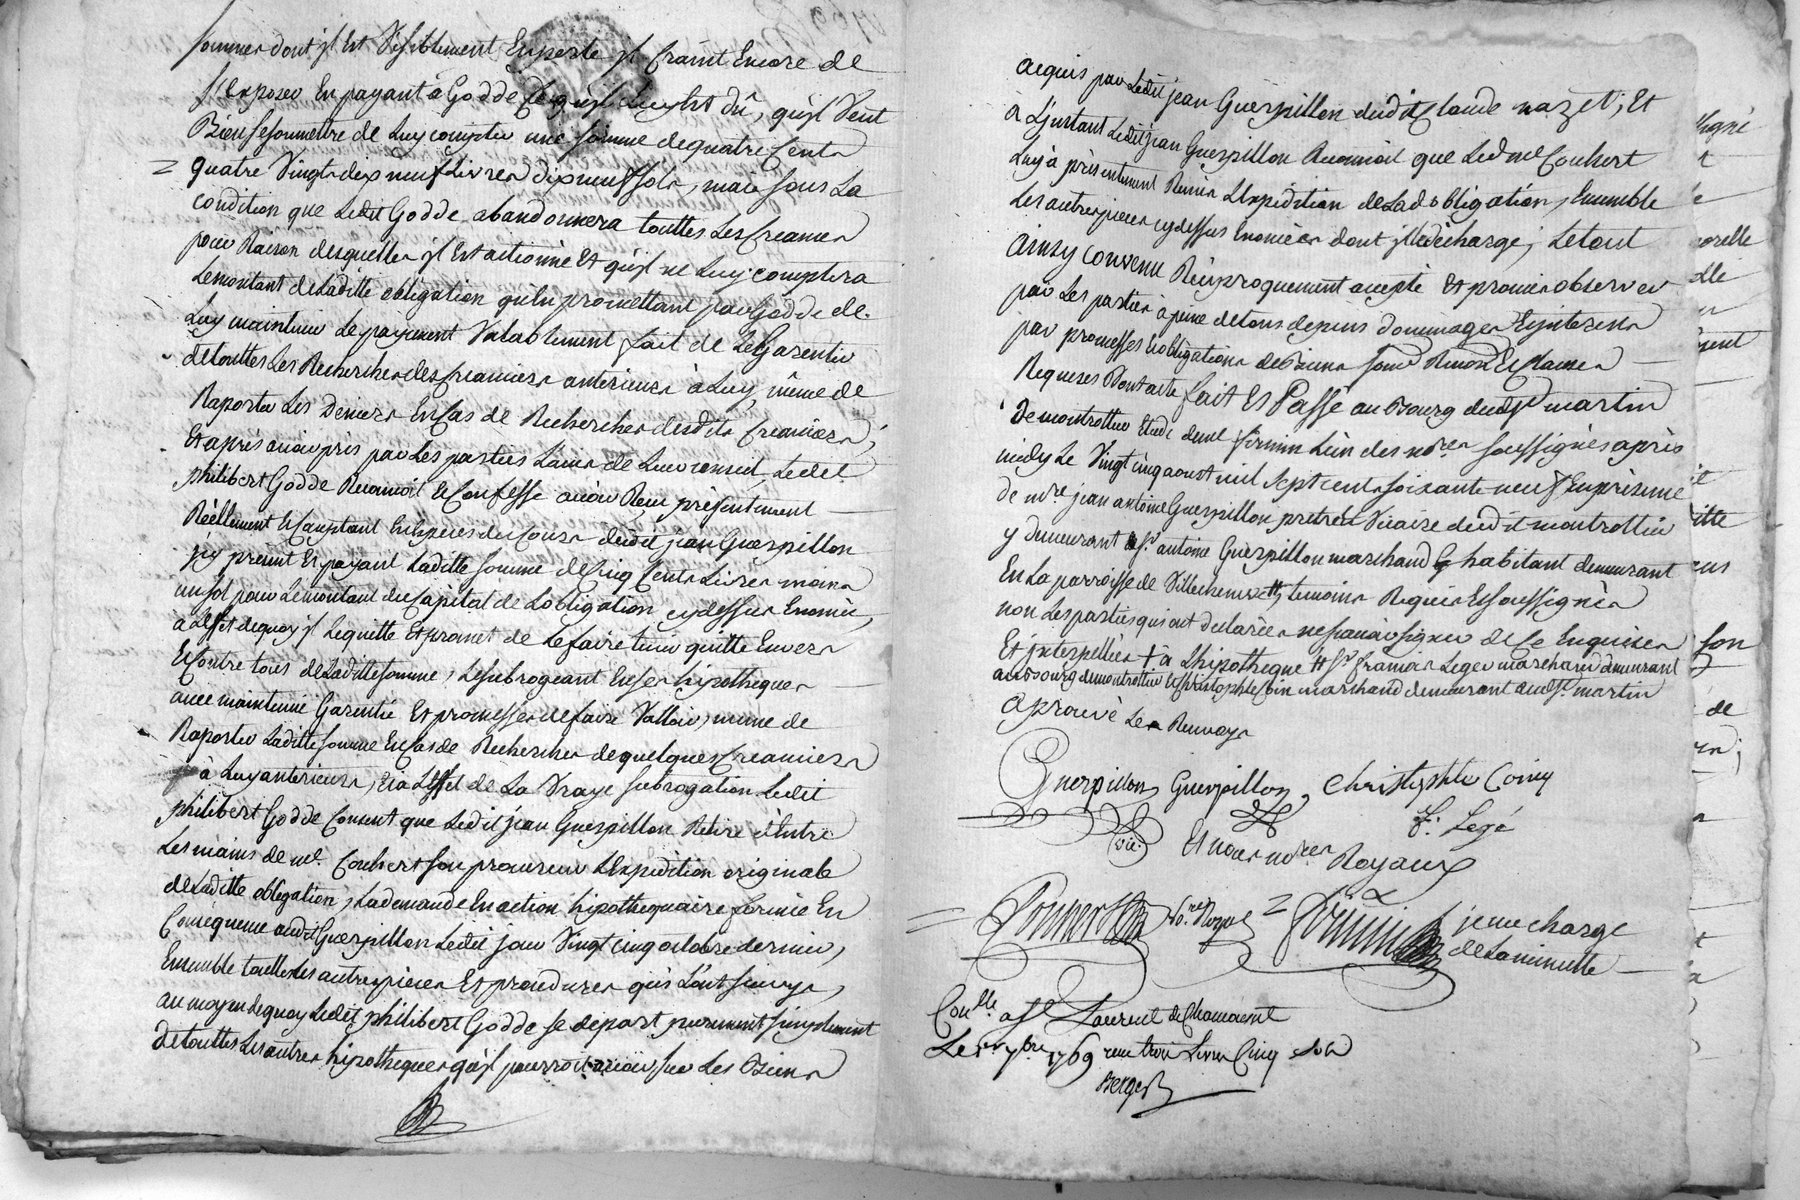 sommes dont jl Est Visiblement En perte jl Craint Encore de
s'Exposer En payant a Godde Ce qu'jl luy Est dû, qu'jl Veut
Bien se soumettre de Luy compter une somme de quatre Cents
quatre Vingts dix neuf Livres dix neuf sols, mais sous La
condition que Ledit Godde abandonnera touttes Les Creances
pour Raison desquelles jl Est actionné Et qu'jl ne Luy comptera
Le montant de Laditte obligation qu'En promettant par Godde de
Luy maintenir Le payement Valablement fait de Le Garentir
de touttes Les Recherches des Creanciers anterieurs à Luy, même de
Raporter Les Deniers En Cas de Recherches desdits Creanciers;
Et après avoir pris par Les parties L'avis de Leur conseil, Ledit
philibert Godde Reconnoit Et Confesse avoir Reçu présentement
Réellement Et Comptant En Espèces du Cours dudit jean Guerpillon
jcy présent Et payant Laditte somme de Cinq Cents Livres moins
un sol pour Le montant du Capital de Lobligation cy dessus Enoncée,
à L'Effet de quoy jl Le quitte Et promet de Le faire tenir quitte Envers
Et Contre tous de Laditte somme, Le subrogeant En ses hipotheques
avec maintenue Garentie Et promesses de faire Valloir, même de
Raporter Laditte somme En Cas de Recherches de quelques Creanciers
à Luy anterieurs, Et à L'Effet de La Vraye subrogation Ledit
philibert Godde Consent que Ledit jean Guerpillon Retire d'Entre
Les mains de me. Couhert son procureur L'Expedition originale
de Laditte obligation, La demande En action hipothequaire formée En
Consequence audit Guerpillon Ledit jour Vingt cinq octobre dernier,
Ensemble touttes Les autres pièces Et procedures qui L'ont suivye,
au moyen de quoy Ledit philibert Godde se départ purement simplement
de touttes Les autres hipotheques qu'jl pourroit avoir sur Les Biens
acquis par Ledit jean Guerpillon dudit Claude nazet; Et
à L'jnstant Ledit jean Guerpillon Reconnoit que Led me Couhert
Luy à présentement Remis L'Expédition de Lad obligation, Ensemble
Les autres pièces cy dessus Enoncées dont jl Le décharge; Le tout
ainsy convenu Réciproquement accepté Et promis observer
par Les parties à peine de tous depens dommages Et jnterests
par promesses Et obligations de Biens soum Renon Et Clauses
Requeses Dont acte fait Et Passé au Bourg dudt St martin
De montrottier Etude de me firmin L'un des nores soussignés après
midy Le Vingt cinq aoust mil sept cents soixante neuf En présence
de mre jean antoine Guerpillon pretre Et Vicaire dudit montrottier
y demeurant Et Sr. antoine Guerpillon marchand habitant demeurant
En La parroisse de Villechenève temoins Requis Et soussignés
non Les parties qui ont declarées ne sçavoir signer de Ce Enquises
Et jnterpellées + à L'hipotheque Et Sr françois Leger marchand demeurant
au Bourg de montrottier Et Christophle Coin marchand demeurant audt St. martin
aprouvé Les Renvoys
Guerpillon Guerpillon Christophle Coin
vic. F. Legé
Et nous nores Royaux
Couhert No.re Royal firmin jeune chargé
de La minutte
Conllé. a St Laurent de Chamousset
Le 1er 7bre 1769 reçu trois Livres Cinq sols
Berger